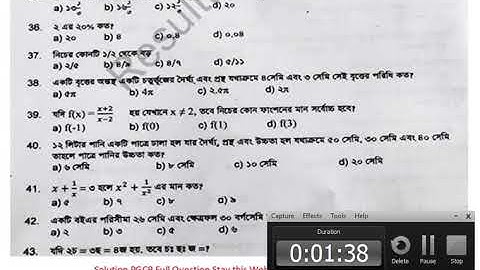 a) ১০ b) ১৬ c) ১২ d) ২০
36. ২ এর ২০% কত?
a) ২০ b) ৪ c) ০.৪ d) ০.০৪
37. নিচের কোনটি ১/২ থেকে বড়
a) ২/৫ b) ৪/৭ c) ৪/৭ d) ৫/১১
38. একটি বৃত্তের অন্তস্থ একটি চতুর্ভূজের দৈর্ঘ্য এবং প্রস্থ যথাক্রমে ৪সেমি এবং ৩ সেমি সেই বৃত্তের পরিধি কত?
a) ৫π b) ৪π c) ২.৫π d) ২π
39. যদি f(x) = x+2/x−2 হয় যেখানে x ≠ 2, তবে নিচের কোন ফাংশনের মান সর্বোচ্চ হবে?
a) f(-1) b) f(0) c) f(1) d) f(3)
40. ১২ লিটার পানি একটি পাত্রে ঢালা হল যার দৈর্ঘ্য, প্রস্থ এবং উচ্চতা হল যথাক্রমে ৫০ সেমি, ৩০ সেমি এবং ৪০ সেমি
তাহলে পাত্রে পানির উচ্চতা কত?
a) ৬ সেমি b) ৮ সেমি c) ১০ সেমি d) ২০ সেমি
41. x + 1/x = ৩ হলে x² + 1/x² এর মান কত?
a) ৬ b) ৭ c) ৮ d) ৯
42. একটি বইএর পরিসীমা ২৬ সেমি এবং ক্ষেত্রফল ৩০ বর্গসেমি
a) ২ b) ৩ c) ৫ d) ৬
43. যদি ২চ = ৩ছ = ৪জ হয়, তবে চঃ ছঃ জ =?
Result
Capture Effects Tools Help
Duration
00:01:38
Delete Pause Stop
Solution PGCB Full Question Stay this Web